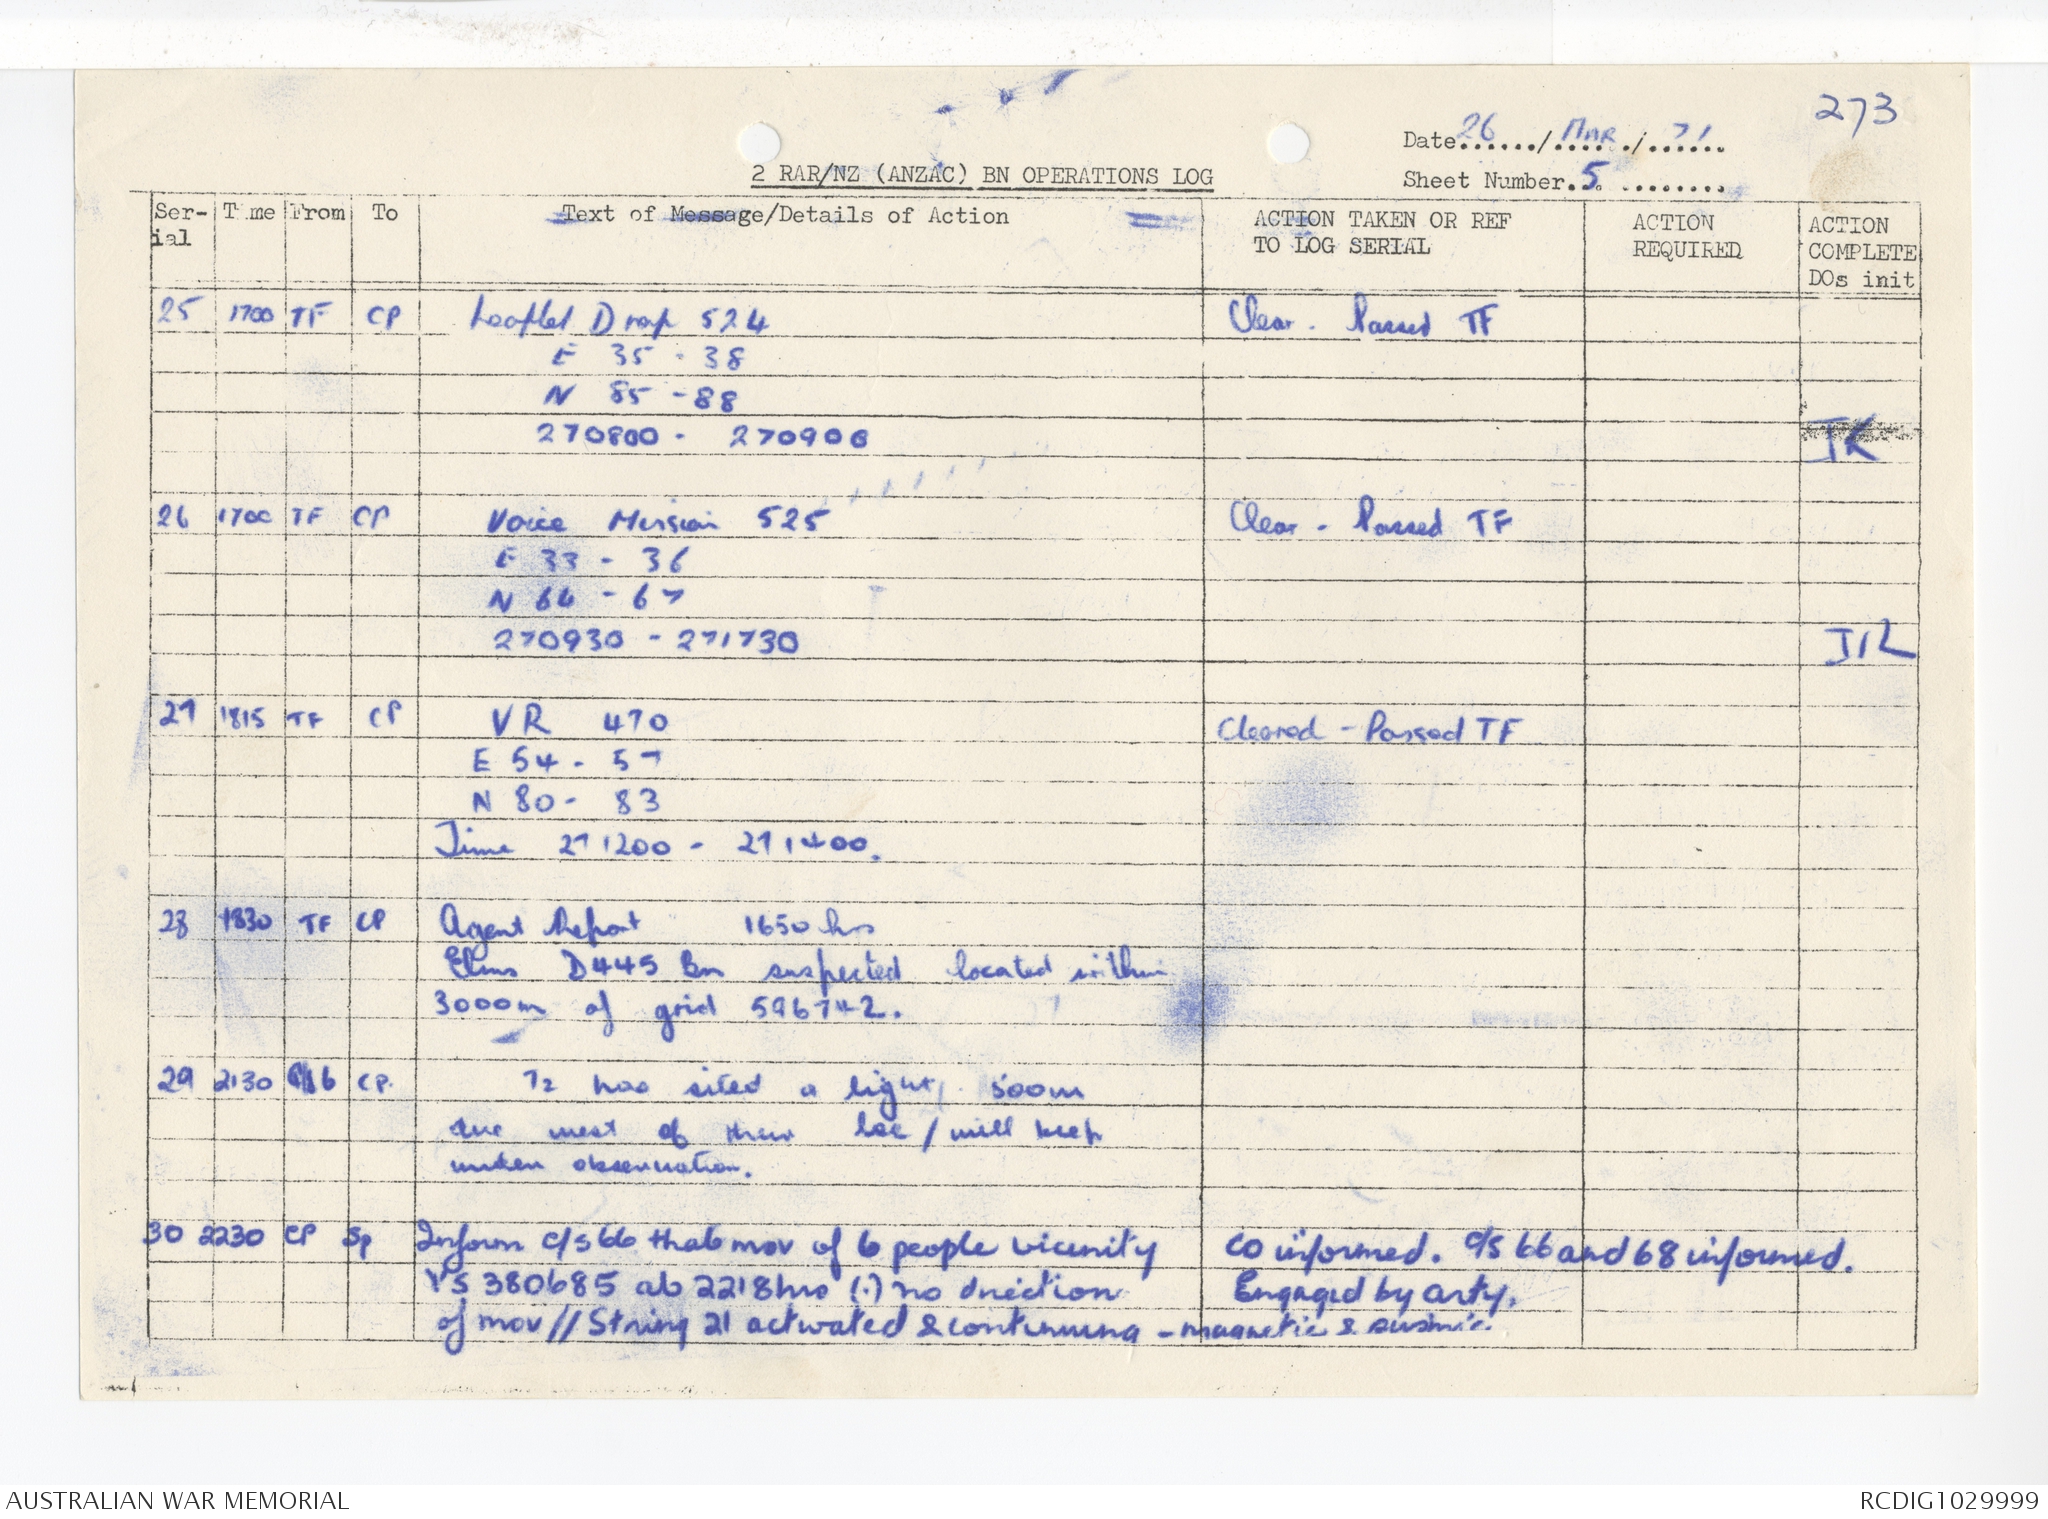 273
Date 26 / Mar / 71
2 RAR/NZ (ANZAC) BN OPERATIONS LOG
Sheet Number 5
Ser-ial Time From To Text of Message/Details of Action ACTION TAKEN OR REF TO LOG SERIAL ACTION REQUIRED ACTION COMPLETE DOs init
25 1700 TF CP Leaflet Drop 524 Clear - Passed TF
E 35 - 38
N 85 - 88
270800 - 270900 JK
26 1700 TF CP Voice Mission 525 Clear - Passed TF
E 33 - 36
N 64 - 67
270930 - 271730 JK
27 1815 TF CP VR 470 Cleared - Passed TF
E 54 - 57
N 80 - 83
Time 271200 - 271400.
28 1830 TF CP Agent Report 1650 hrs
Elms D445 Bn suspected located within
3000m of grid 596742.
29 2130 CP. 72 has sited a light, 500m
due west of their loc / will keep
under observation.
30 2230 CP Sp Inform c/s 66 that mov of 6 people vicinity CO informed. c/s 66 and 68 informed.
YS 380685 at 2218hrs (.) no direction Engaged by arty.
of mov // String 21 activated & continuing - magnetic & seismic.
AUSTRALIAN WAR MEMORIAL
RCDIG1029999